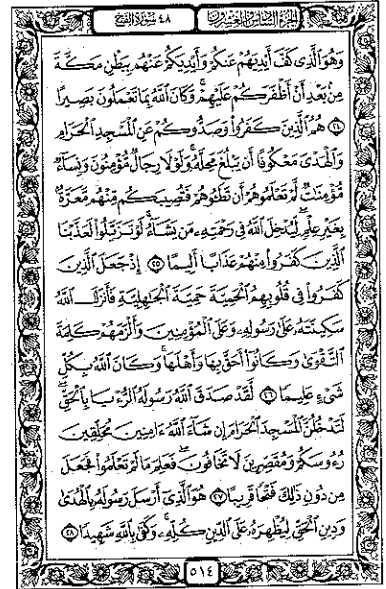 الجزء السادس والعشرون ٤٨ سورة الفتح
وَهُوَ الَّذِي كَفَّ أَيْدِيَهُمْ عَنكُمْ وَأَيْدِيَكُمْ عَنْهُم بِبَطْنِ مَكَّةَ
مِنۢ بَعْدِ أَنْ أَظْفَرَكُمْ عَلَيْهِمْ ۚ وَكَانَ اللَّهُ بِمَا تَعْمَلُونَ بَصِيرًا
﴿٢٤﴾ هُمُ الَّذِينَ كَفَرُوا وَصَدُّوكُمْ عَنِ الْمَسْجِدِ الْحَرَامِ
وَالْهَدْيَ مَعْكُوفًا أَن يَبْلُغَ مَحِلَّهُ ۚ وَلَوْلَا رِجَالٌ مُّؤْمِنُونَ وَنِسَاءٌ
مُّؤْمِنَاتٌ لَّمْ تَعْلَمُوهُمْ أَن تَطَئُوهُمْ فَتُصِيبَكُم مِّنْهُم مَّعَرَّةٌۢ
بِغَيْرِ عِلْمٍ ۖ لِّيُدْخِلَ اللَّهُ فِي رَحْمَتِهِ مَن يَشَاءُ ۚ لَوْ تَزَيَّلُوا لَعَذَّبْنَا
الَّذِينَ كَفَرُوا مِنْهُمْ عَذَابًا أَلِيمًا ﴿٢٥﴾ إِذْ جَعَلَ الَّذِينَ
كَفَرُوا فِي قُلُوبِهِمُ الْحَمِيَّةَ حَمِيَّةَ الْجَاهِلِيَّةِ فَأَنزَلَ اللَّهُ
سَكِينَتَهُ عَلَىٰ رَسُولِهِ وَعَلَى الْمُؤْمِنِينَ وَأَلْزَمَهُمْ كَلِمَةَ
التَّقْوَىٰ وَكَانُوا أَحَقَّ بِهَا وَأَهْلَهَا ۚ وَكَانَ اللَّهُ بِكُلِّ
شَيْءٍ عَلِيمًا ﴿٢٦﴾ لَّقَدْ صَدَقَ اللَّهُ رَسُولَهُ الرُّءْيَا بِالْحَقِّ ۖ
لَتَدْخُلُنَّ الْمَسْجِدَ الْحَرَامَ إِن شَاءَ اللَّهُ ءَامِنِينَ مُحَلِّقِينَ
رُءُوسَكُمْ وَمُقَصِّرِينَ لَا تَخَافُونَ ۖ فَعَلِمَ مَا لَمْ تَعْلَمُوا فَجَعَلَ
مِن دُونِ ذَٰلِكَ فَتْحًا قَرِيبًا ﴿٢٧﴾ هُوَ الَّذِي أَرْسَلَ رَسُولَهُ بِالْهُدَىٰ
وَدِينِ الْحَقِّ لِيُظْهِرَهُ عَلَى الدِّينِ كُلِّهِ ۚ وَكَفَىٰ بِاللَّهِ شَهِيدًا ﴿٢٨﴾
٥١٤